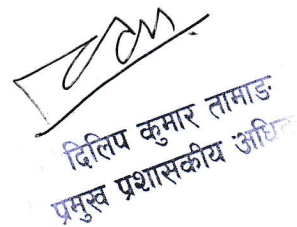 दिलिप कुमार तामाङ
प्रमुख प्रशासकीय